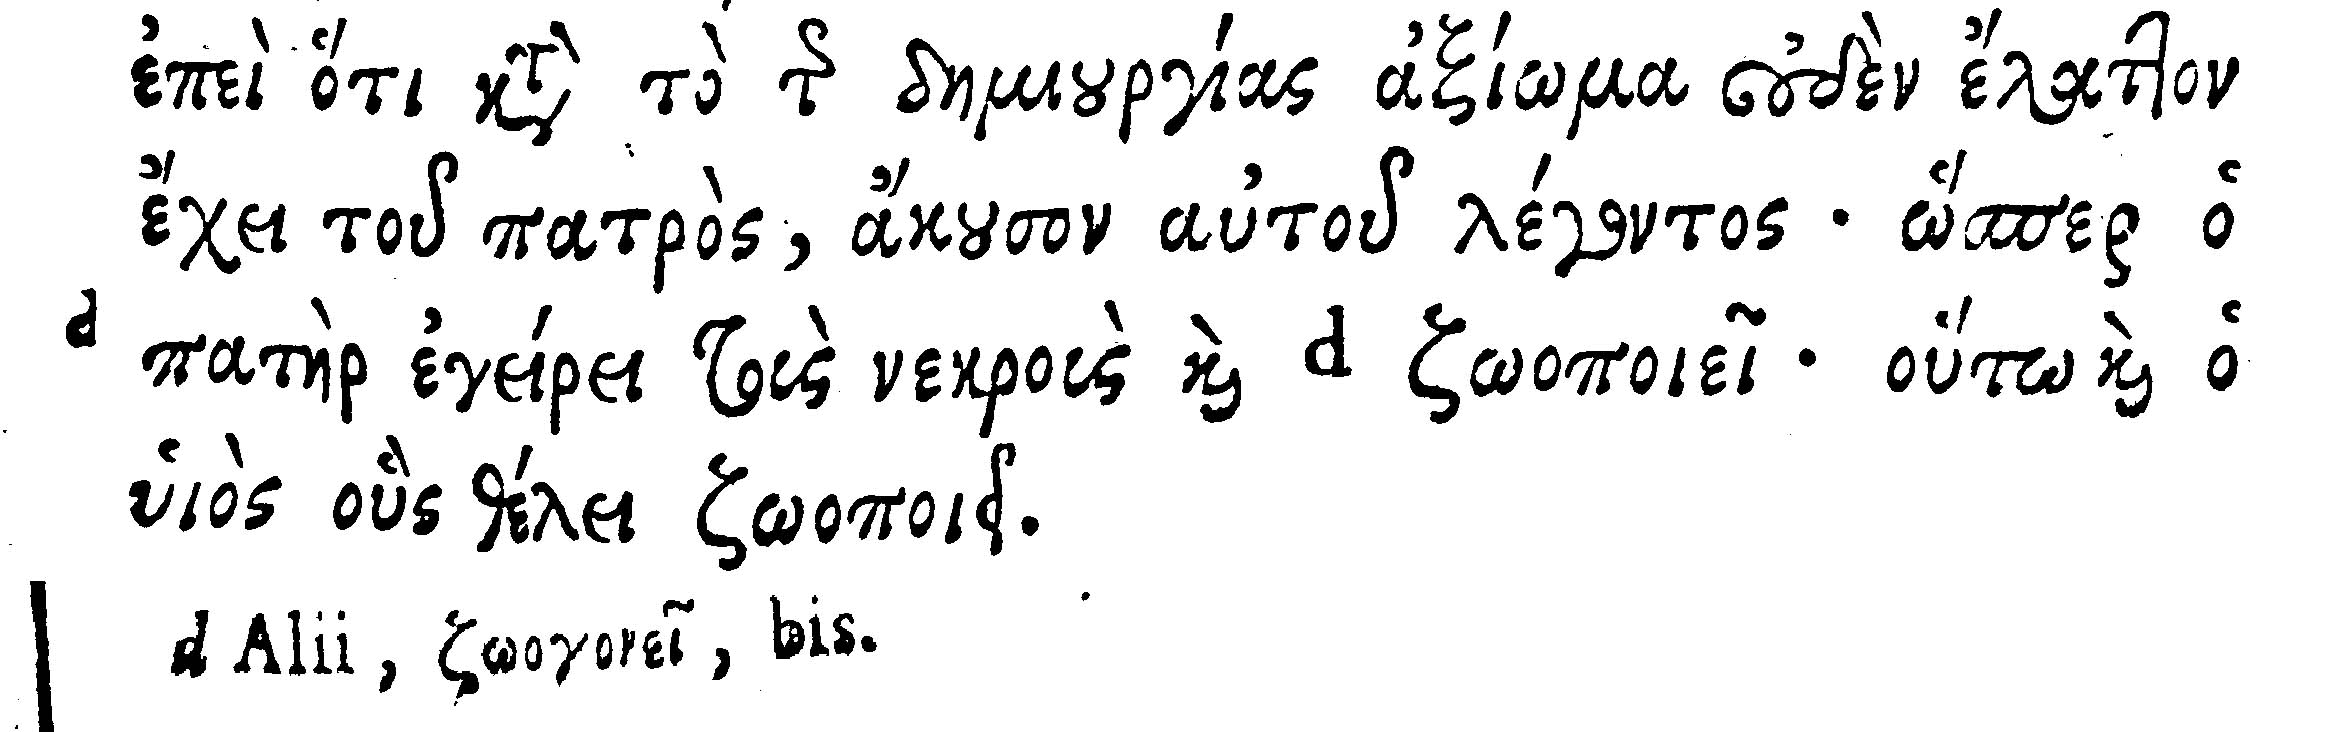 ἐπεὶ ὅτι κατὰ τὸ τῆς δημιουργίας ἀξίωμα οὐδὲν ἔλαττον
ἔχει τοῦ πατρὸς, ἄκουσον αὐτοῦ λέγοντος · ὥσπερ ὁ
d πατὴρ ἐγείρει τοὺς νεκροὺς καὶ d ζωοποιεῖ · οὕτω καὶ ὁ
υἱὸς οὓς θέλει ζωοποιεῖ.
d Alii, ζωογονεῖ, bis.